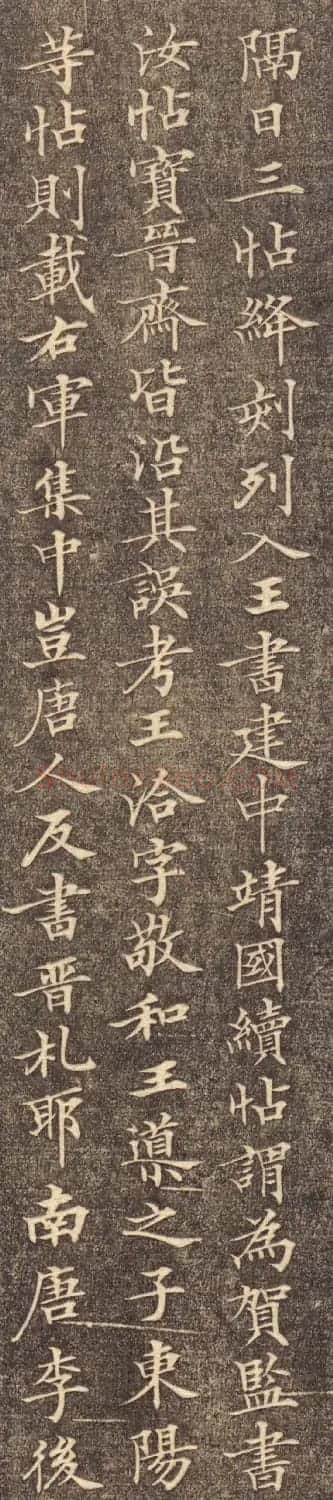 隅日三帖絳刻列入王書建中靖國續帖謂為賀監書
汝帖寶晉齋皆沿其誤考王洽字敬和王導之子東陽
等帖則載右軍集中豈唐人反書晉札耶南唐李後